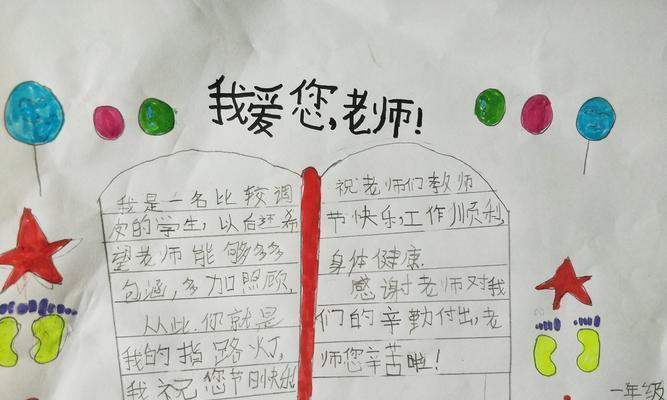 我爱您,老师!
我是一名比较调
皮的学生,以后还希
望老师能够多多
包涵,多加照顾,
从此你就是
我的指路灯,
我祝您节日快乐
祝老师们教师
节快乐,工作顺利,
身体健康.
感谢老师对我
们的辛勤付出,老
师您辛苦啦!
一年级